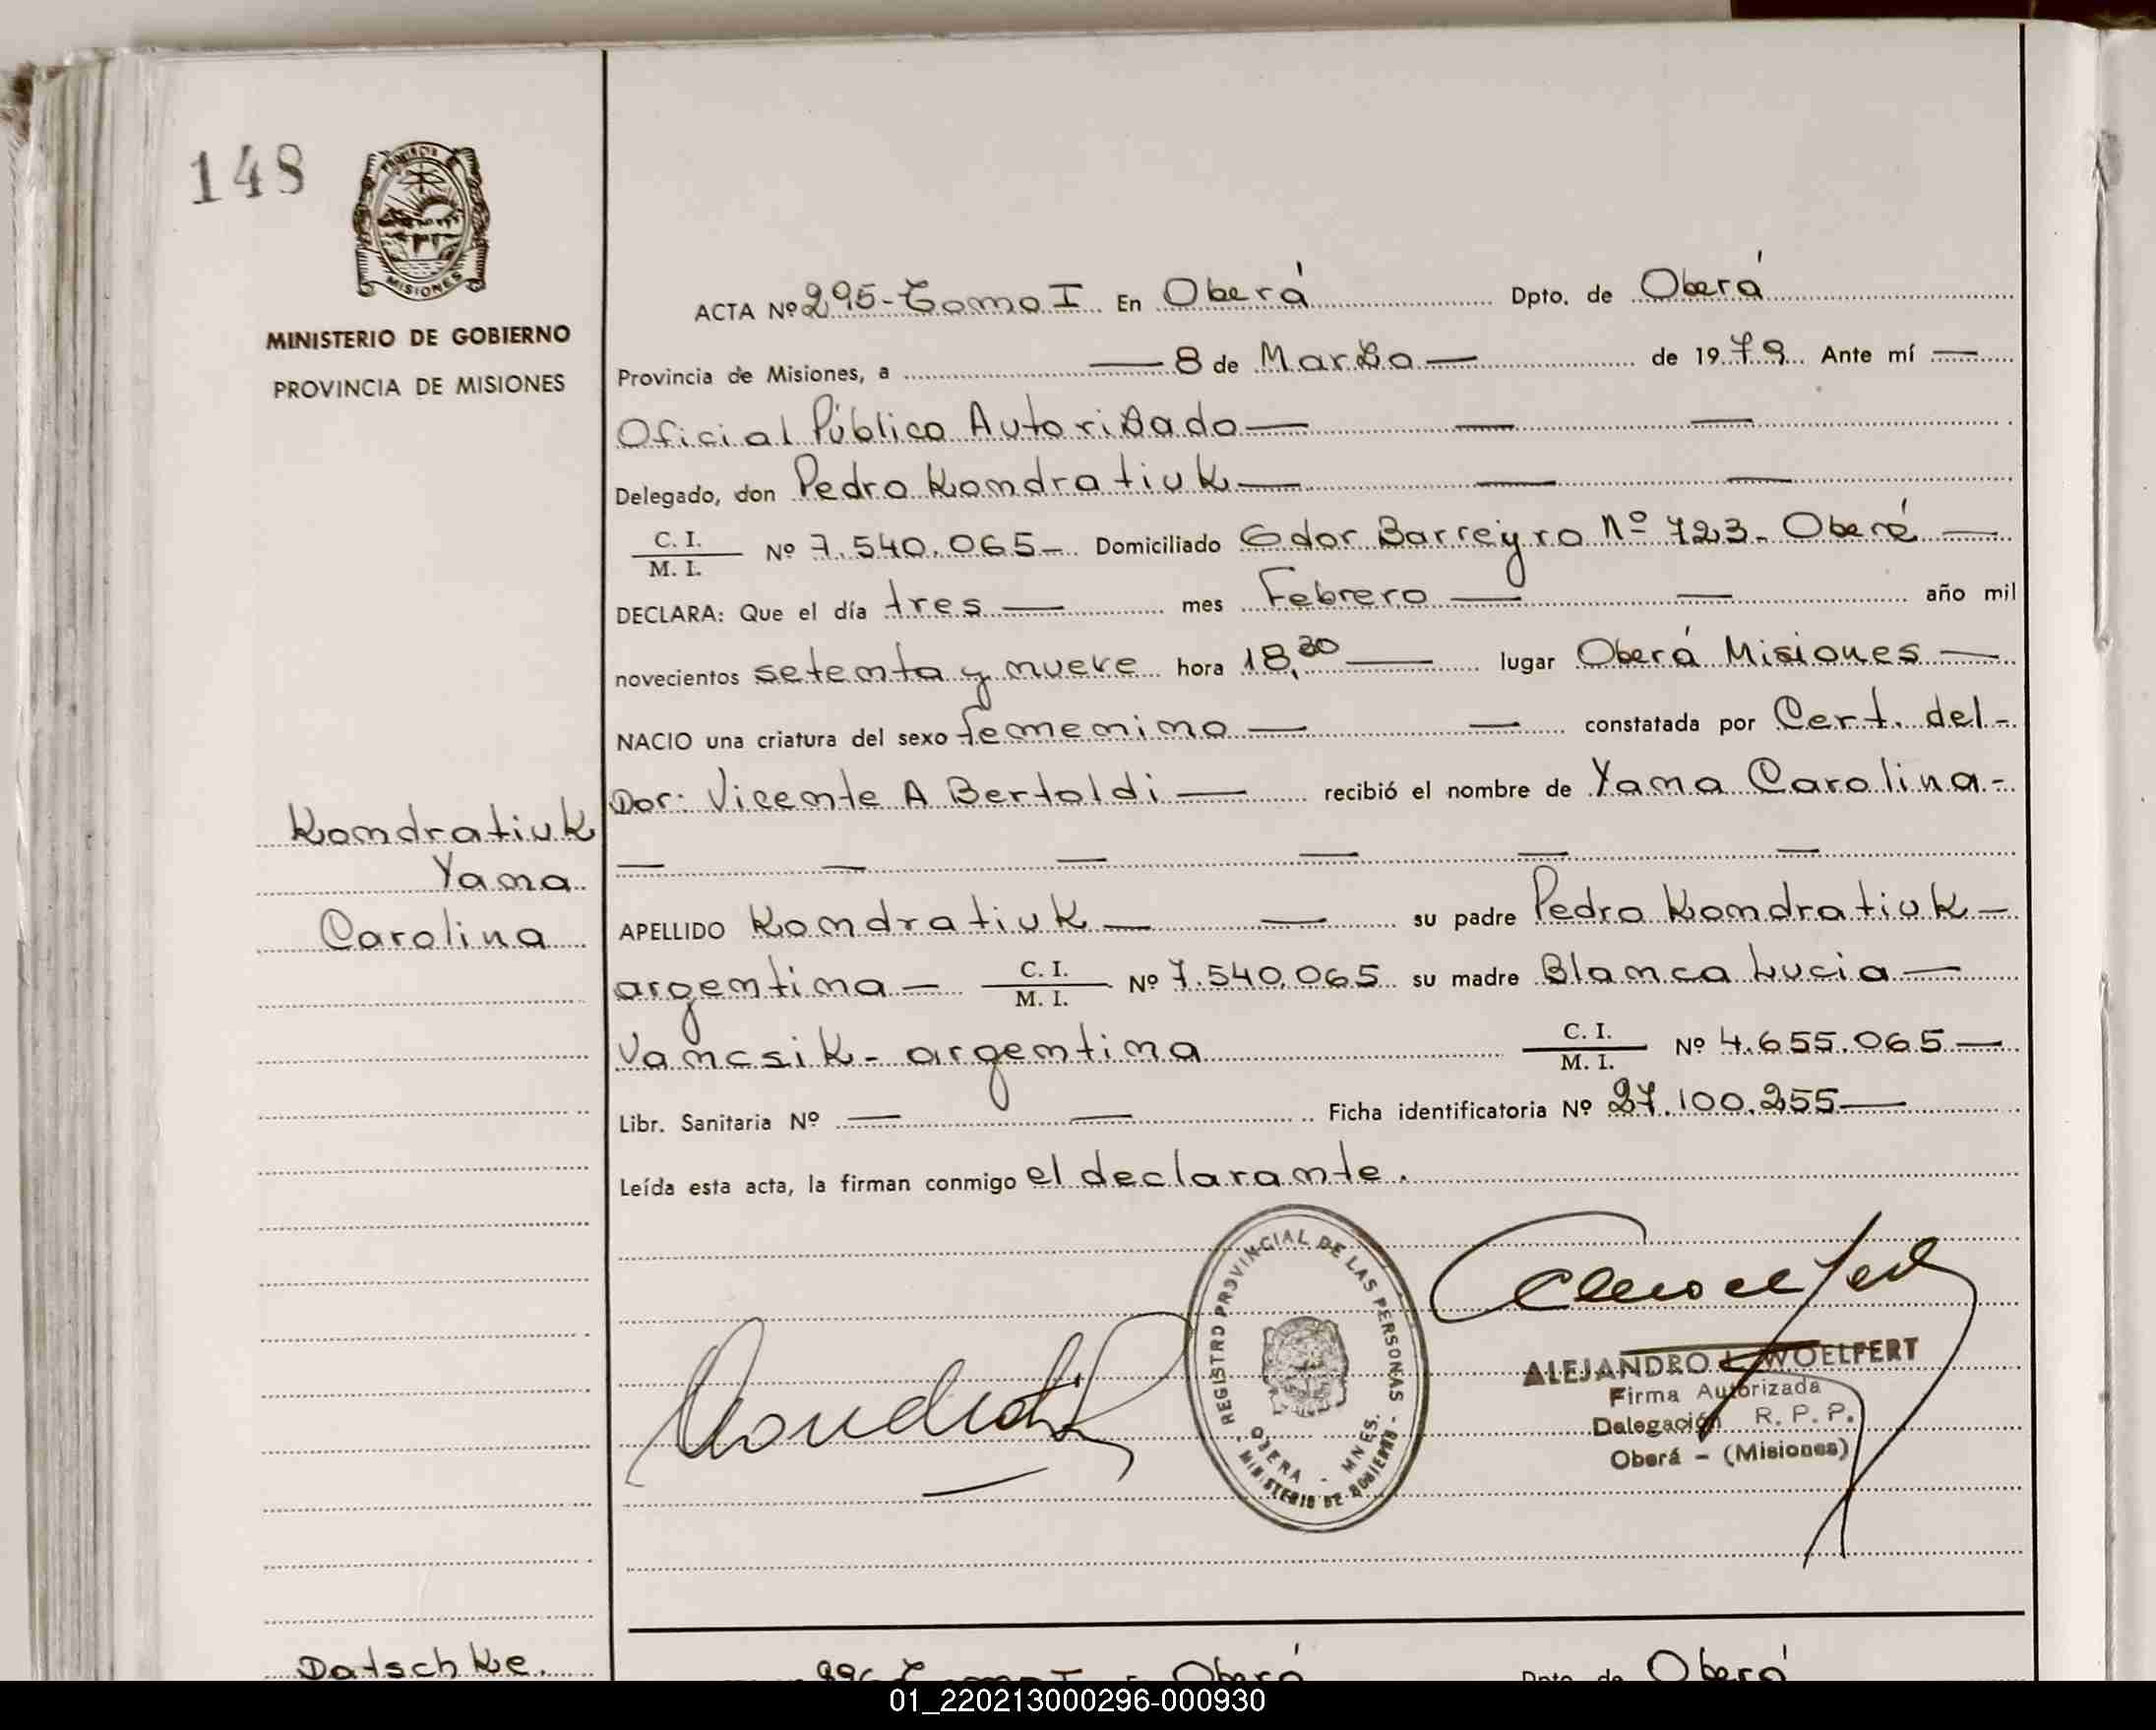 148
PROVINCIA
MISIONES
MINISTERIO DE GOBIERNO
PROVINCIA DE MISIONES
Kondratiuk
Yana
Carolina
Datschke.
ACTA Nº 295-Tomo I En Oberá Dpto. de Oberá
Provincia de Misiones, a — 8 de Marzo — de 1979 Ante mí —
Oficial Público Autorizado — — —
Delegado, don Pedro Kondratiuk — — —
C. I.
M. I. Nº 7.540.065- Domiciliado Gdor Barreyro Nº 723- Oberá —
DECLARA: Que el día tres — mes Febrero — — año mil
novecientos setenta y nueve hora 18,30 — lugar Oberá Misiones —
NACIO una criatura del sexo femenino — — constatada por Cert. del-
Dor: Vicente A Bertoldi — recibió el nombre de Yana Carolina-
— — — — — —
APELLIDO Kondratiuk — — su padre Pedro Kondratiuk -
argentina — C. I.
M. I. Nº 7.540.065 su madre Blanca Lucia —
Vancsik- argentina C. I.
M. I. Nº 4.655.065 —
Libr. Sanitaria Nº — — Ficha identificatoria Nº 27.100.255 —
Leída esta acta, la firman conmigo el declarante.
REGISTRO PROVINCIAL DE LAS PERSONAS -
OBERA - MNES.
MINISTERIO DE GOBIERNO
ALEJANDRO L. WOELFERT
Firma Autorizada
Delegación R. P. P.
Oberá - (Misiones)
296 Tomo I En Oberá Dpto. de Oberá
01_220213000296-000930